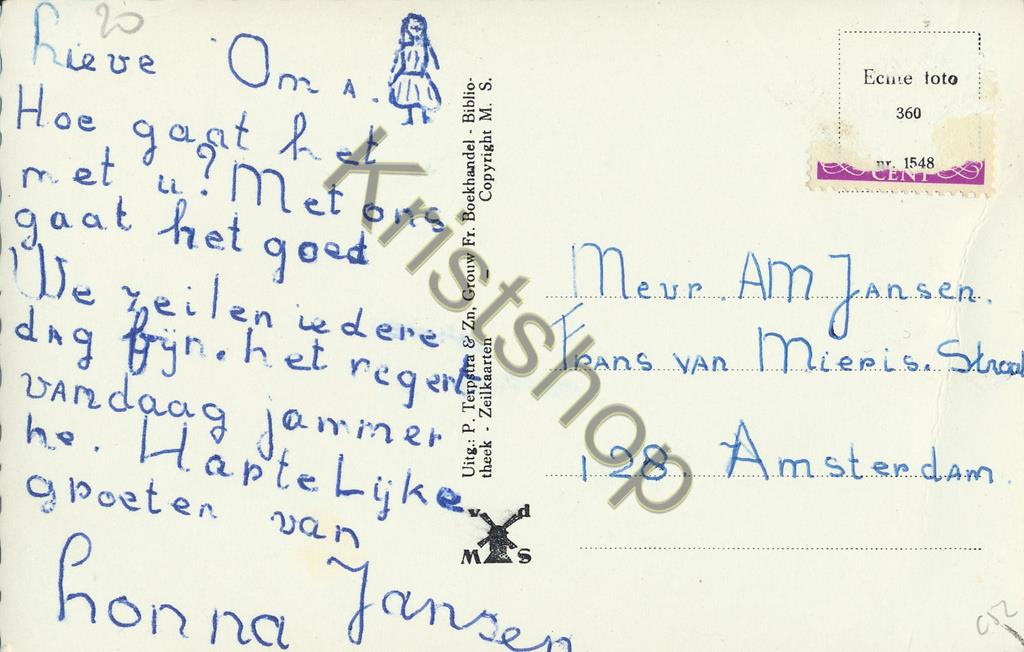 20
Lieve Oma.
Hoe gaat het
met u? Met ons
gaat het goed
We zeilen iedere
dag fijn. het regent
vandaag jammer
he. HarteLijke
groeten van
honna Jansen
Uitg.: P. Terpstra & Zn. Grouw Fr. Boekhandel - Biblio-
theek - Zeilkaarten Copyright M. S.
v d
M S
Echte foto
360
nr. 1548
CENT
Mevr. AM Jansen.
Frans van Mieris. Straat
128. Amsterdam.
Kristshop